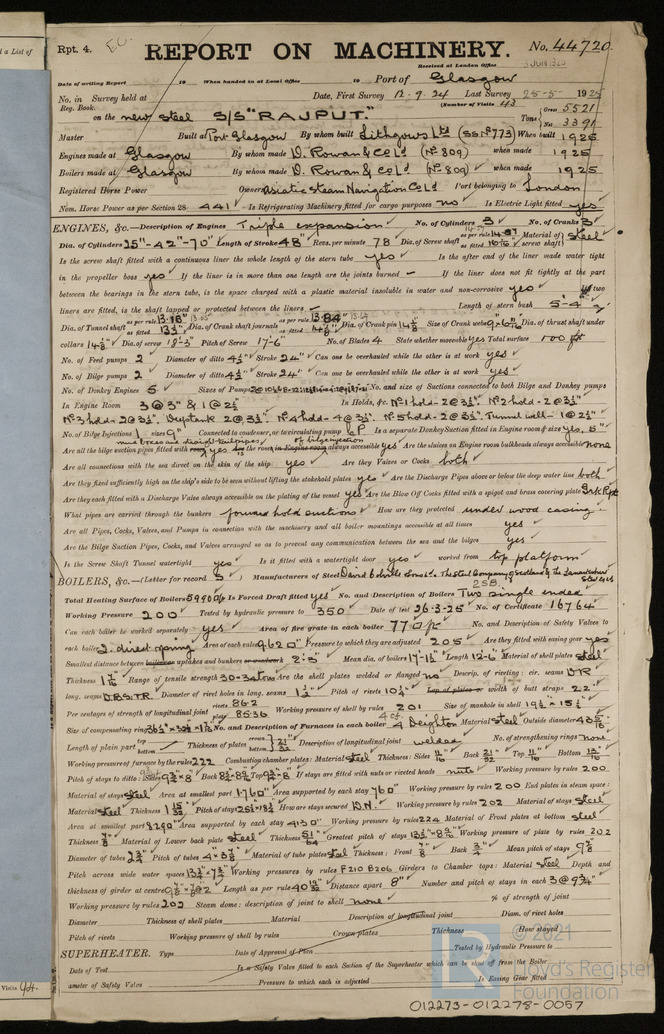 d a List of
Rpt. 4.
REPORT ON MACHINERY.
No. 44720.
Received at London Office
Date of writing Report 19 When handed in at Local Office 19 Port of Glasgow
No. in Survey held at Date, First Survey 12.9.24 Last Survey 25-5- 1925
Reg. Book. (Number of Visits 43
on the new steel S/S "RAJPUT." Tons Gross 5521 Net 3391
Master Built at Port Glasgow By whom built Lithgows Ltd (SS No 773) When built 1925
Engines made at Glasgow By whom made D. Rowan & Co Ld (No 809) when made 1925
Boilers made at Glasgow By whom made D. Rowan & Co Ld (No 809) when made 1925
Registered Horse Power Owners Asiatic Steam Navigation Co Ld Port belonging to London
Nom. Horse Power as per Section 28 441 Is Refrigerating Machinery fitted for cargo purposes no Is Electric Light fitted yes
ENGINES, &c.—Description of Engines Triple expansion No. of Cylinders 3 No. of Cranks 3
Dia. of Cylinders 25"-42"-70" Length of Stroke 48" Revs. per minute 78 Dia. of Screw shaft as per rule 14.87 as fitted Material of screw shaft steel
Is the screw shaft fitted with a continuous liner the whole length of the stern tube yes Is the after end of the liner made water tight
in the propeller boss yes If the liner is in more than one length are the joints burned — If the liner does not fit tightly at the part
between the bearings in the stern tube, is the space charged with a plastic material insoluble in water and non-corrosive yes If two
liners are fitted, is the shaft lapped or protected between the liners — Length of stern bush 5'-4"
Dia. of Tunnel shaft as per rule 13.18" as fitted 13½" Dia. of Crank shaft journals as per rule 13.84" as fitted 14⅛" Dia. of Crank pin 14⅛" Size of Crank webs Dia. of thrust shaft under
collars 14⅛" Dia. of screw 18'-3" Pitch of Screw 17'-6" No. of Blades 4 State whether moveable yes Total surface 100 ft
No. of Feed pumps 2 Diameter of ditto 4½" Stroke 24" Can one be overhauled while the other is at work yes
No. of Bilge pumps 2 Diameter of ditto 4½" Stroke 24" Can one be overhauled while the other is at work yes
No. of Donkey Engines 5 Sizes of Pumps No. and size of Suctions connected to both Bilge and Donkey pumps
In Engine Room 3 @ 3" & 1 @ 2½" In Holds, &c. No 1 hold - 2 @ 3½" No 2 hold - 2 @ 3½"
No 3 hold - 2 @ 3½", Deeptank 2 @ 3½", No 4 hold - 4 @ 3½", No 5 hold - 2 @ 3½", Tunnel well - 1 @ 2½"
No. of Bilge Injections 1 sizes 9" Connected to condenser, or to circulating pump CP Is a separate Donkey Suction fitted in Engine room & size yes, 5"
Are all the bilge suction pipes fitted with roses yes Are the roses in Engine room always accessible yes Are the sluices on Engine room bulkheads always accessible none
Are all connections with the sea direct on the skin of the ship yes Are they Valves or Cocks both
Are they fixed sufficiently high on the ship's side to be seen without lifting the stokehold plates yes Are the Discharge Pipes above or below the deep water line both
Are they each fitted with a Discharge Valve always accessible on the plating of the vessel yes Are the Blow Off Cocks fitted with a spigot and brass covering plate
What pipes are carried through the bunkers forward hold suctions How are they protected under wood casing
Are all Pipes, Cocks, Valves, and Pumps in connection with the machinery and all boiler mountings accessible at all times yes
Are the Bilge Suction Pipes, Cocks, and Valves arranged so as to prevent any communication between the sea and the bilges yes
Is the Screw Shaft Tunnel watertight yes Is it fitted with a watertight door yes worked from top platform
BOILERS, &c.—(Letter for record S) Manufacturers of Steel David Colville & Sons Ld. The Steel Company of Scotland & The Lanarkshire Steel Co Ld
Total Heating Surface of Boilers 5990 Is Forced Draft fitted yes No. and Description of Boilers Two single ended
Working Pressure 200 Tested by hydraulic pressure to 350 Date of test 26.3.25 No. of Certificate 16764
Can each boiler be worked separately yes Area of fire grate in each boiler 77 No. and Description of Safety Valves to
each boiler 2. direct spring Area of each valve 9.620" Pressure to which they are adjusted 205 Are they fitted with easing gear yes
Smallest distance between boilers or uptakes and bunkers or woodwork 2'.3" Mean dia. of boilers 17'-1½" Length 12'-6" Material of shell plates steel
Thickness Range of tensile strength 30-34 tons Are the shell plates welded or flanged no Descrip. of riveting: cir. seams D.R
long. seams D.B.S.T.R. Diameter of rivet holes in long. seams Pitch of rivets 10¼" Lap of plates or width of butt straps 22"
Per centages of strength of longitudinal joint rivets 86.2 plate 85.36 Working pressure of shell by rules 201 Size of manhole in shell
Size of compensating ring No. and Description of Furnaces in each boiler 4 Deighton Material steel Outside diameter
Length of plain part top bottom Thickness of plates crown bottom 21/32 Description of longitudinal joint welded No. of strengthening rings none
Working pressure of furnace by the rules 222 Combustion chamber plates: Material steel Thickness: Sides 11/16" Back 21/32" Top 11/16" Bottom
Pitch of stays to ditto: Sides Back Top If stays are fitted with nuts or riveted heads nuts Working pressure by rules 200
Material of stays steel Area at smallest part 1.760" Area supported by each stay 760" Working pressure by rules 200 End plates in steam space:
Material steel Thickness Pitch of stays How are stays secured D.N. Working pressure by rules 202 Material of stays steel
Area at smallest part 8290 Area supported by each stay 4130" Working pressure by rules 224 Material of Front plates at bottom steel
Thickness ⅞" Material of Lower back plate steel Thickness Greatest pitch of stays Working pressure of plate by rules 202
Diameter of tubes 2½" Pitch of tubes Material of tube plates steel Thickness: Front ⅞" Back Mean pitch of stays
Pitch across wide water spaces Working pressures by rules F210 B206 Girders to Chamber tops: Material steel Depth and
thickness of girder at centre Length as per rule Distance apart 8" Number and pitch of stays in each 3 @ 9¾"
Working pressure by rules 202 Steam dome: description of joint to shell none % of strength of joint
Diameter Thickness of shell plates Material Description of longitudinal joint Diam. of rivet holes
Pitch of rivets Working pressure of shell by rules Crown plates Thickness How stayed
SUPERHEATER. Type Date of Approval of Plan Tested by Hydraulic Pressure to
Date of Test Is a Safety Valve fitted to each Section of the Superheater which can be shut off from the Boiler
ameter of Safety Valve Pressure to which each is adjusted Is Easing Gear fitted
Visits 94.
© 2021
Lloyd's Register
Foundation
012273-012278-0057